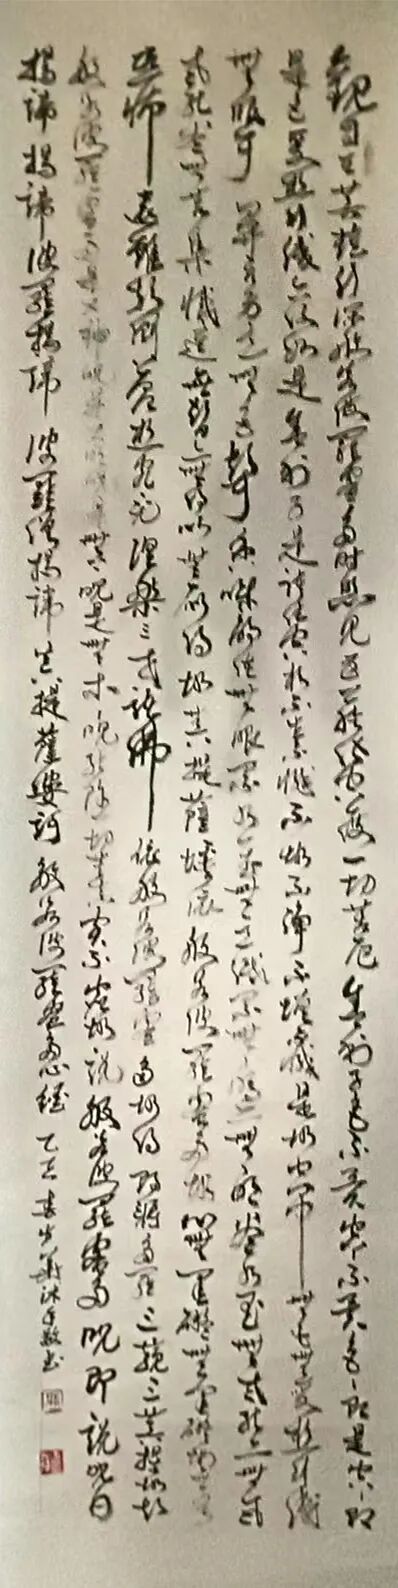 觀自在菩薩行深般若波羅蜜多時照見五蘊皆空度一切苦厄舍利子色不異空空不異色色即是空空即
是色受想行識亦復如是舍利子是諸法空相不生不滅不垢不淨不增不減是故空中無色無受想行識
無眼耳鼻舌身意無色聲香味觸法無眼界乃至無意識界無無明亦無無明盡乃至無老死亦無老
死盡無苦集滅道無智亦無得以無所得故菩提薩埵依般若波羅蜜多故心無罣礙無罣礙故無有
恐怖遠離顛倒夢想究竟涅槃三世諸佛依般若波羅蜜多故得阿耨多羅三藐三菩提故知
般若波羅蜜多是大神咒是大明咒是無上咒是無等等咒能除一切苦真實不虛故說般若波羅蜜多咒即說咒曰
揭諦揭諦波羅揭諦波羅僧揭諦菩提薩婆訶般若波羅蜜多心經乙巳